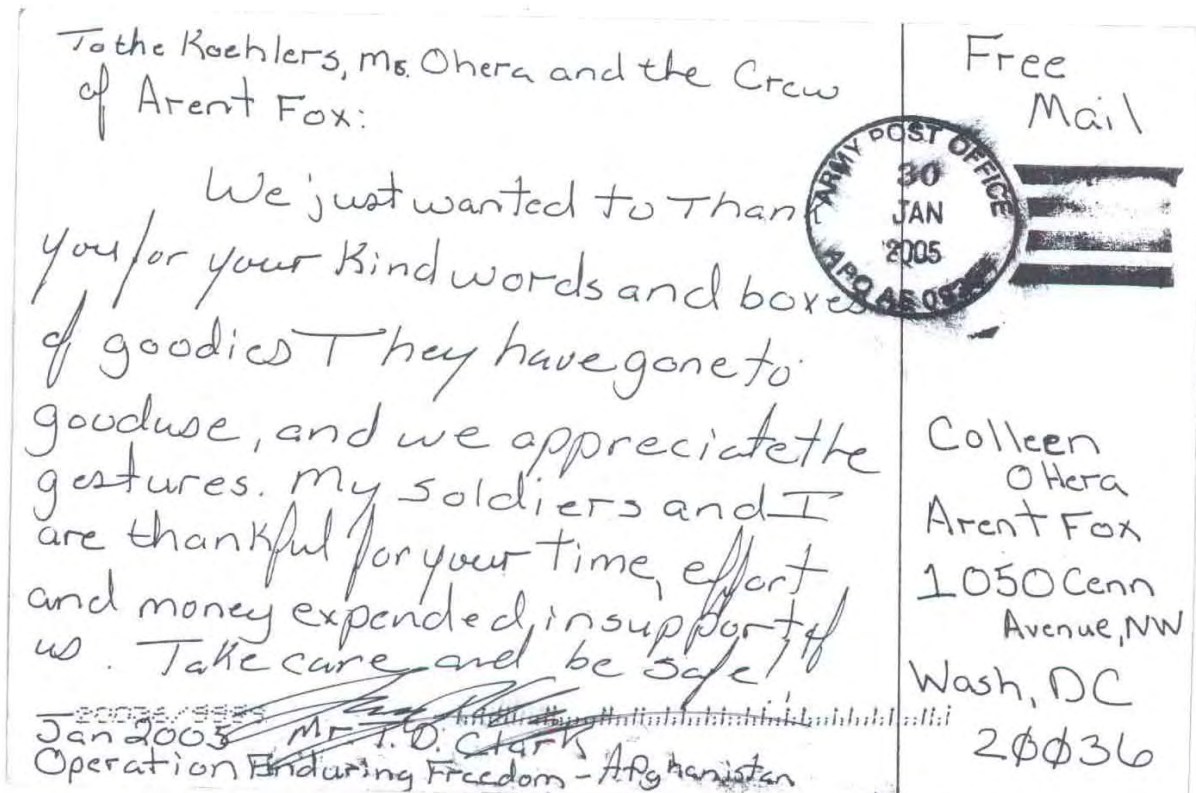 To the Koehlers, Ms. Ohera and the Crew
of Arent Fox:
We just wanted to Thank
you for your Kind words and boxes
of goodies They have gone to
good use, and we appreciate the
gestures. My soldiers and I
are thankful for your time, effort
and money expended in support of
us. Take care and be safe!
Jan 2005 Mr T. D. Clark
Operation Enduring Freedom - Afghanistan
Free
Mail
ARMY POST OFFICE
30
JAN
2005
APO AE
Colleen
OHera
Arent Fox
1050 Cenn
Avenue, NW
Wash, DC
20036